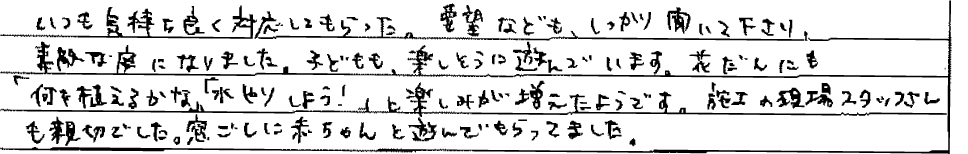 いつも気持ち良く対応してもらった。要望なども、しっかり聞いて下さり、
素敵な庭になりました。子どもも、楽しそうに遊んでいます。花だんにも
「何を植えるかな」「水やりしよう!」と楽しみが増えたようです。施工の現場スタッフさん
も親切でした。窓ごしに赤ちゃんと遊んでもらってました。